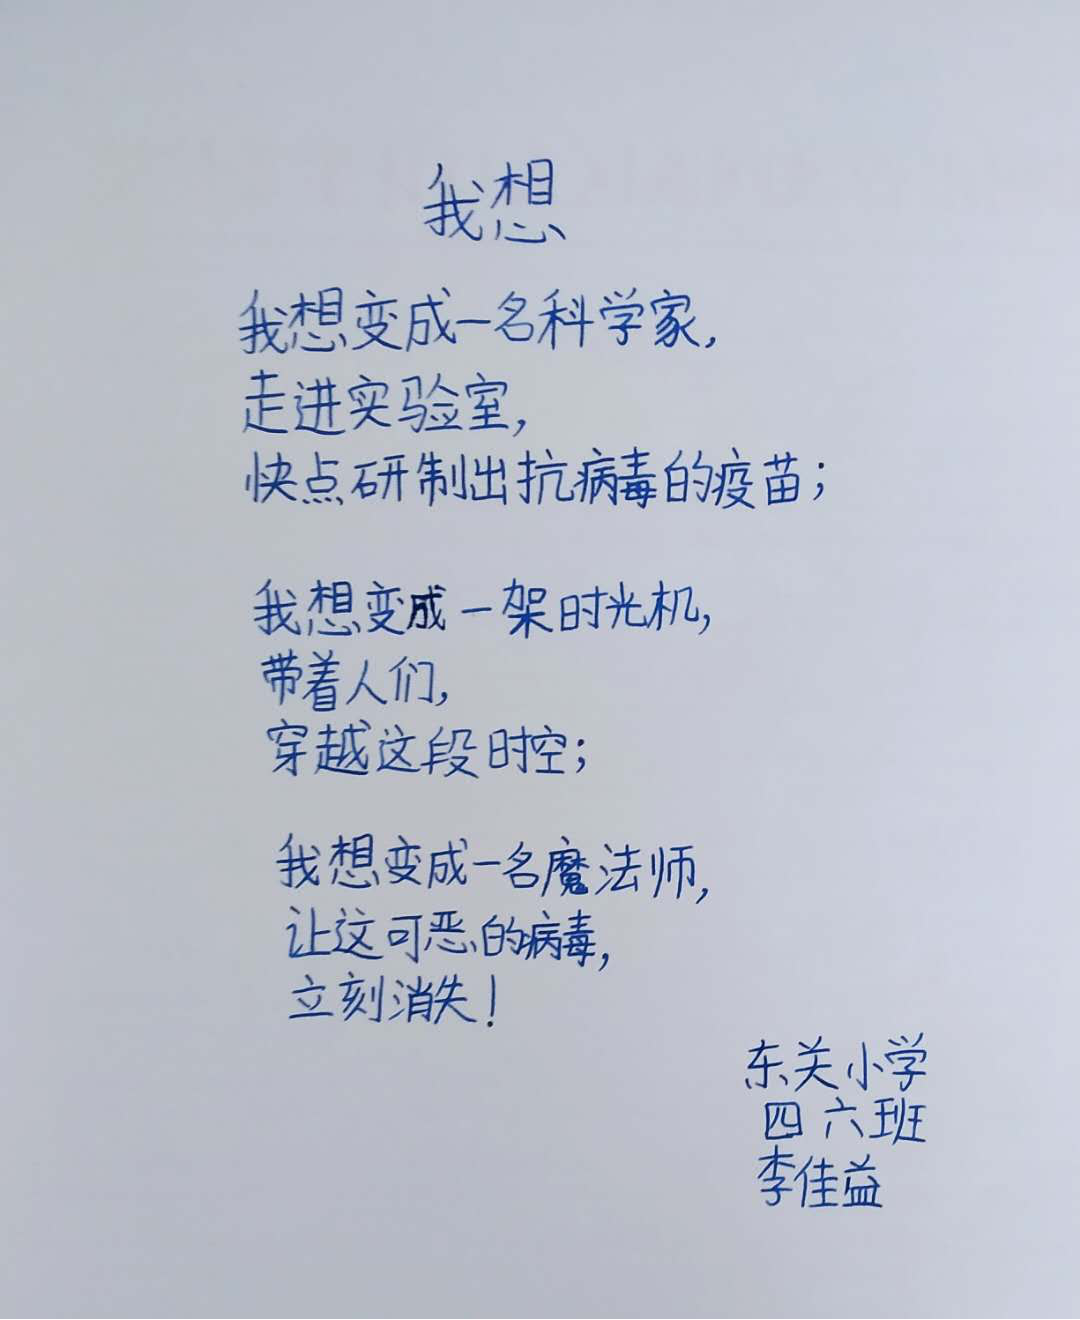 我想
我想变成一名科学家,
走进实验室,
快点研制出抗病毒的疫苗;
我想变成一架时光机,
带着人们,
穿越这段时空;
我想变成一名魔法师,
让这可恶的病毒,
立刻消失!
东关小学
四六班
李佳益